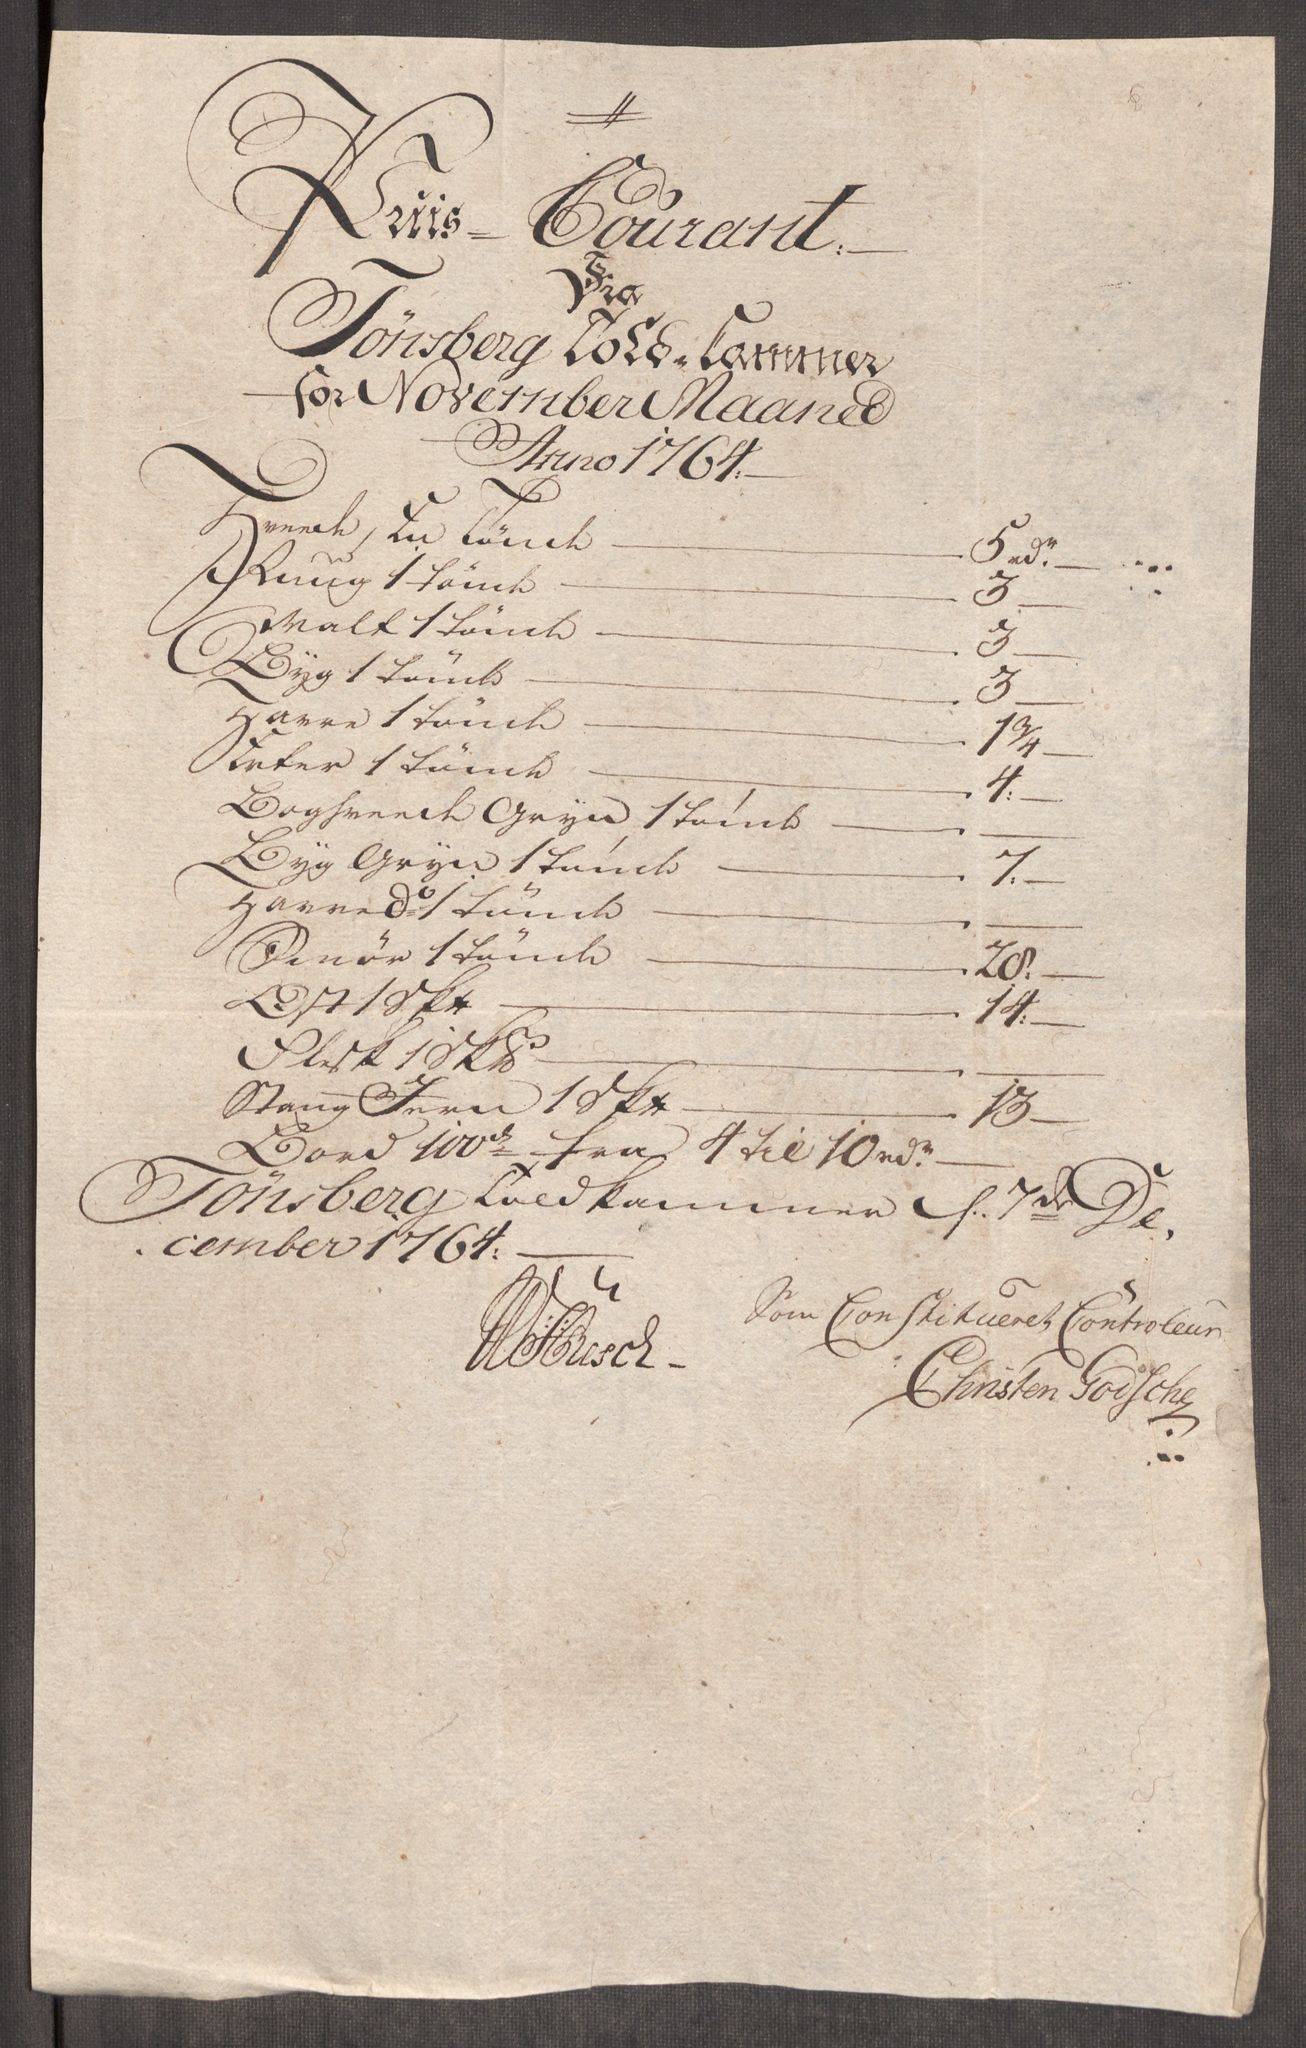 Priis-Courant
Fra
Tönsberg Told-Cammer
for November Maaned
Anno 1764.
Hveede, En Tönde 5 rdr.
Ruug 1 tönde 3
Malt 1 tönde 3
Byg 1 tönde 3
Havre 1 tönde 1 3/4
Erter 1 tönde 4
Boghveede Gryn 1 tönde
Byg Gryn 1 tönde 7
Havre do 1 tönde
Smör 1 tönde 28
Ost 1 Sk℔ 14
Flesk 1 Sk℔
Stang Jern 1 Sk℔ 13
Bord 100de fra 4 til 10 rdr.
Tönsberg Toldkammer d. 7de De-
cember 1764.
Busch
Som Constitueret Controleur
Christen Godsche